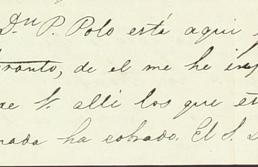 Dn P. Polo está aquí
pronto, de el me he
allí los que
nada ha cobrado. El S. D